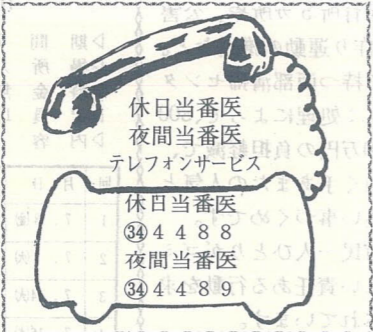 休日当番医
夜間当番医
テレフォンサービス
休日当番医
㉞4488
夜間当番医
㉞4489